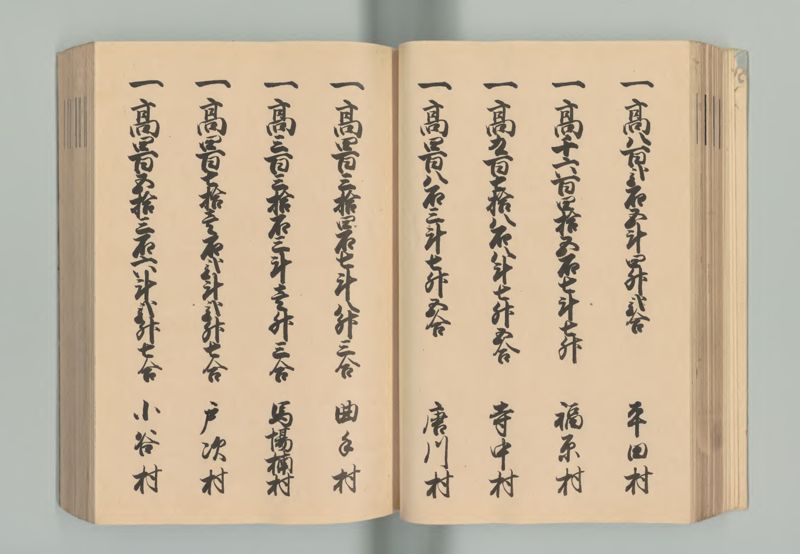 一高八百弐石五斗四升弐合 平田村
一高千六百四拾五石七斗七升 福原村
一高九百七拾八石八斗七升五合 寺中村
一高四百八石三斗七升五合 唐川村
一高四百三拾四石七斗八升三合 曲手村
一高三百三拾石三斗壱升三合 馬場楠村
一高四百七拾壱石弐斗弐升七合 戸次村
一高四百五拾三石六斗弐升七合 小谷村